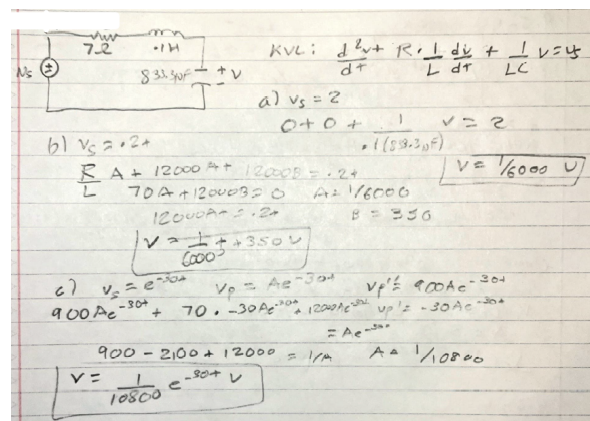 7Ω .1H
Vs 833.3µF + V
-
KVL: d²v/dt + R · 1/L dv/dt + 1/LC v = vs
a) vs = 2
0 + 0 + 1/.1(833.3µF) v = 2
v = 1/6000 v
b) vs = .2t
R/L A + 12000At + 12000B = .2t
70A + 12000B = 0 A = 1/6000
12000At = .2t B = 350
v = 1/6000 t + 350 v
c) vs = e^-30t vp = Ae^-30t vp'' = 900Ae^-30t
900Ae^-30t + 70 · -30Ae^-30t + 12000Ae^-30t vp' = -30Ae^-30t
= Ae^-30t
900 - 2100 + 12000 = 1/A A = 1/10800
v = 1/10800 e^-30t v